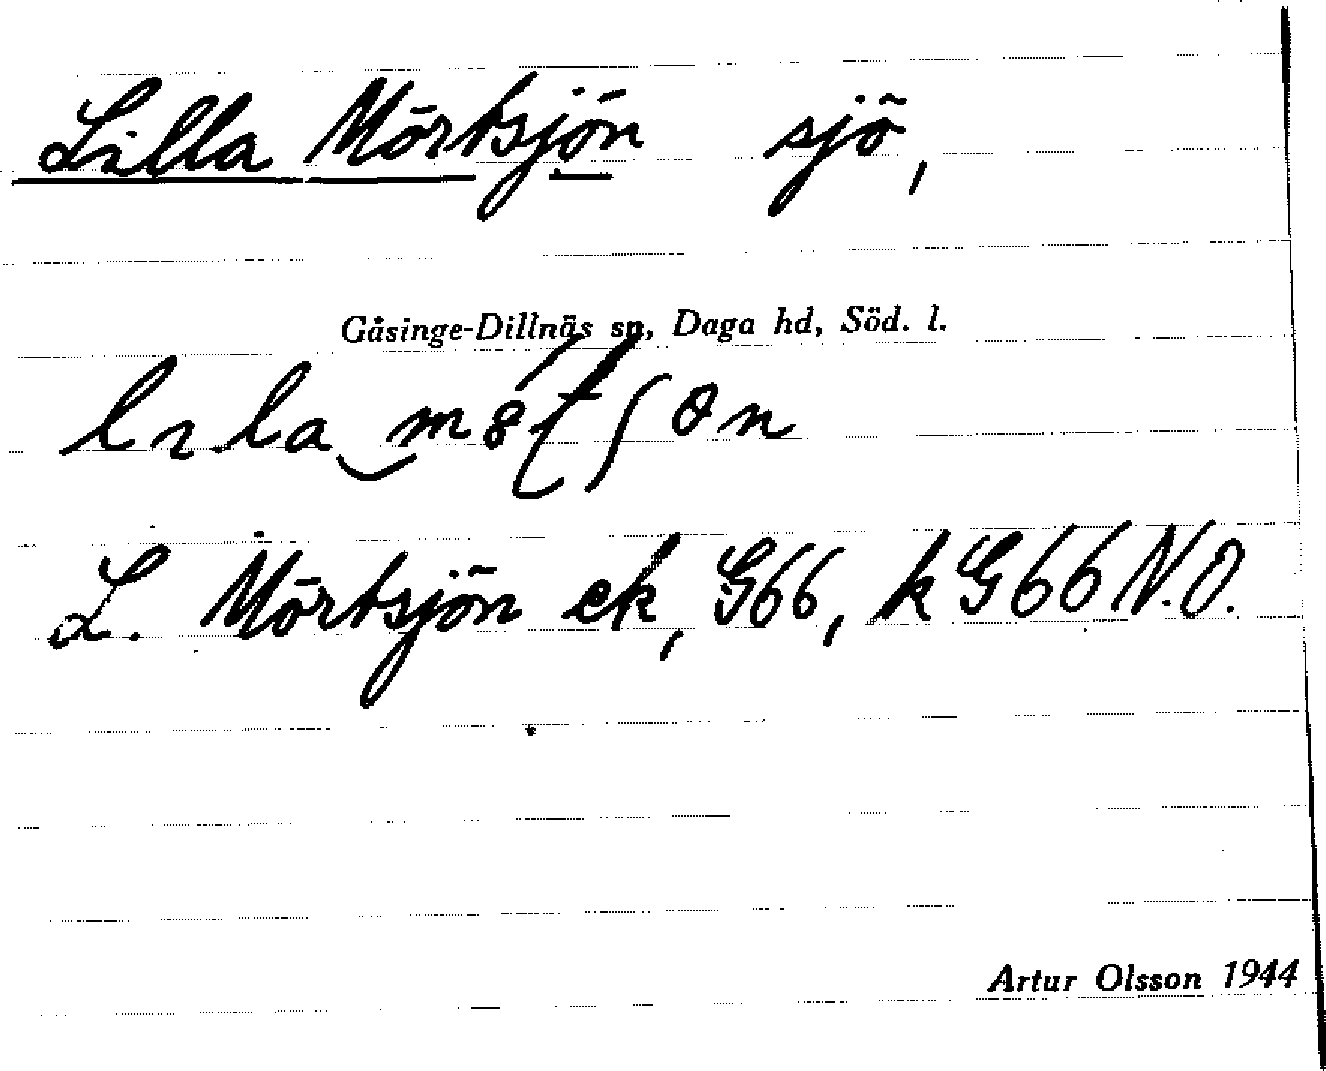 Lilla Mörtsjön sjö,
Gåsinge-Dillnäs sn, Daga hd, Söd. l.
L. Mörtsjön ek, G66, k G66 N.O.
Artur Olsson 1944